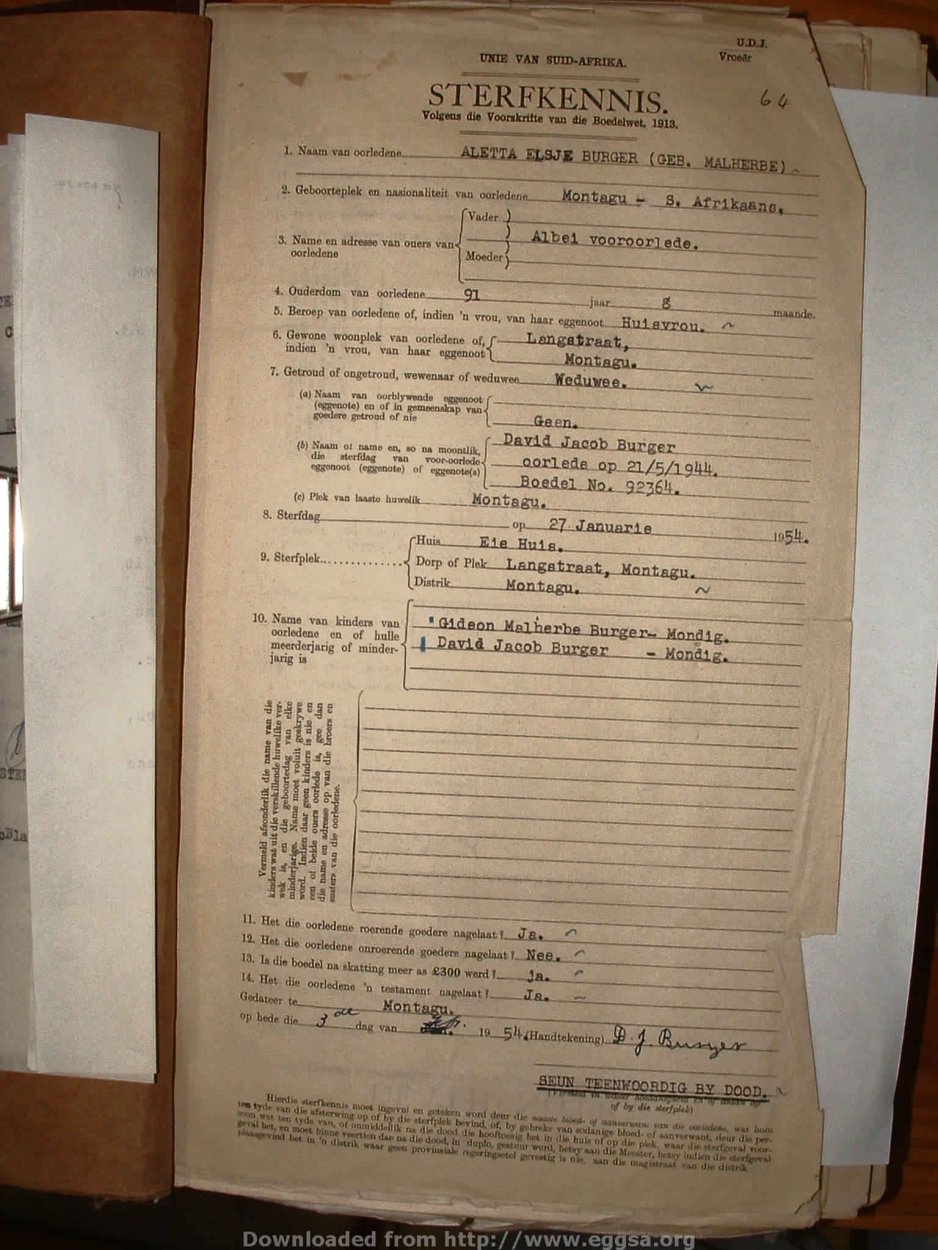 U.D.J.
Vroeër
UNIE VAN SUID-AFRIKA.
64
STERFKENNIS.
Volgens die Voorskrifte van die Boedelwet, 1913.
1. Naam van oorledene ALETTA ELSJE BURGER (GEB. MALHERBE)
2. Geboorteplek en nasionaliteit van oorledene Montagu - S. Afrikaans.
3. Name en adresse van ouers van oorledene
Vader )
Albei vooroorlede.
Moeder )
4. Ouderdom van oorledene 91 jaar 8 maande.
5. Beroep van oorledene of, indien 'n vrou, van haar eggenoot Huisvrou.
6. Gewone woonplek van oorledene of, Langstraat,
indien 'n vrou, van haar eggenoot Montagu.
7. Getroud of ongetroud, wewenaar of weduwee Weduwee.
(a) Naam van oorblywende eggenoot
(eggenote) en of in gemeenskap van
goedere getroud of nie Geen.
(b) Naam of name en, so na moontlik, David Jacob Burger
die sterfdag van voor-oorlede oorlede op 21/5/1944.
eggenoot (eggenote) of eggenote(s) Boedel No. 92364.
(c) Plek van laaste huwelik Montagu.
8. Sterfdag op 27 Januarie 1954.
9. Sterfplek
Huis Eie Huis.
Dorp of Plek Langstraat, Montagu.
Distrik Montagu.
10. Name van kinders van
oorledene en of hulle
meerderjarig of minder-
jarig is
Gideon Malherbe Burger- Mondig.
David Jacob Burger - Mondig.
Vermeld afsonderlik die name van die
kinders wat uit die verskillende huwelike ver-
wek is, en die geboortedag van elke
minderjarige. Name moet voluit geskrywe
word. Indien daar geen kinders is nie en
een of beide ouers oorlede is, gee dan
die name en adresse op van die broers en
susters van die oorledene.
11. Het die oorledene roerende goedere nagelaat? Ja.
12. Het die oorledene onroerende goedere nagelaat? Nee.
13. Is die boedel na skatting meer as £300 werd? ja.
14. Het die oorledene 'n testament nagelaat? Ja.
Gedateer te Montagu.
op hede die 3de dag van 1954. (Handtekening) D. J. Burger
SEUN TEENWOORDIG BY DOOD.
of by die sterfplek)
Hierdie sterfkennis moet ingevul en geteken word deur die naaste bloed- of aanverwant van die oorledene, wat hom
ten tyde van die afsterwing op of by die sterfplek bevind, of, by gebreke van sodanige bloed- of aanverwant, deur die per-
soon wat ten tyde van, of onmiddellik na die dood die hooftoesig het in die huis of op die plek, waar die sterfgeval voor-
geval het, en moet binne veertien dae na die dood, in duplo, gestuur word, hetsy aan die Meester, hetsy indien die sterfgeval
plaasgevind het in 'n distrik waar geen provinsiale regeringsetel gevestig is nie, aan die magistraat van die distrik
Downloaded from http://www.eggsa.org